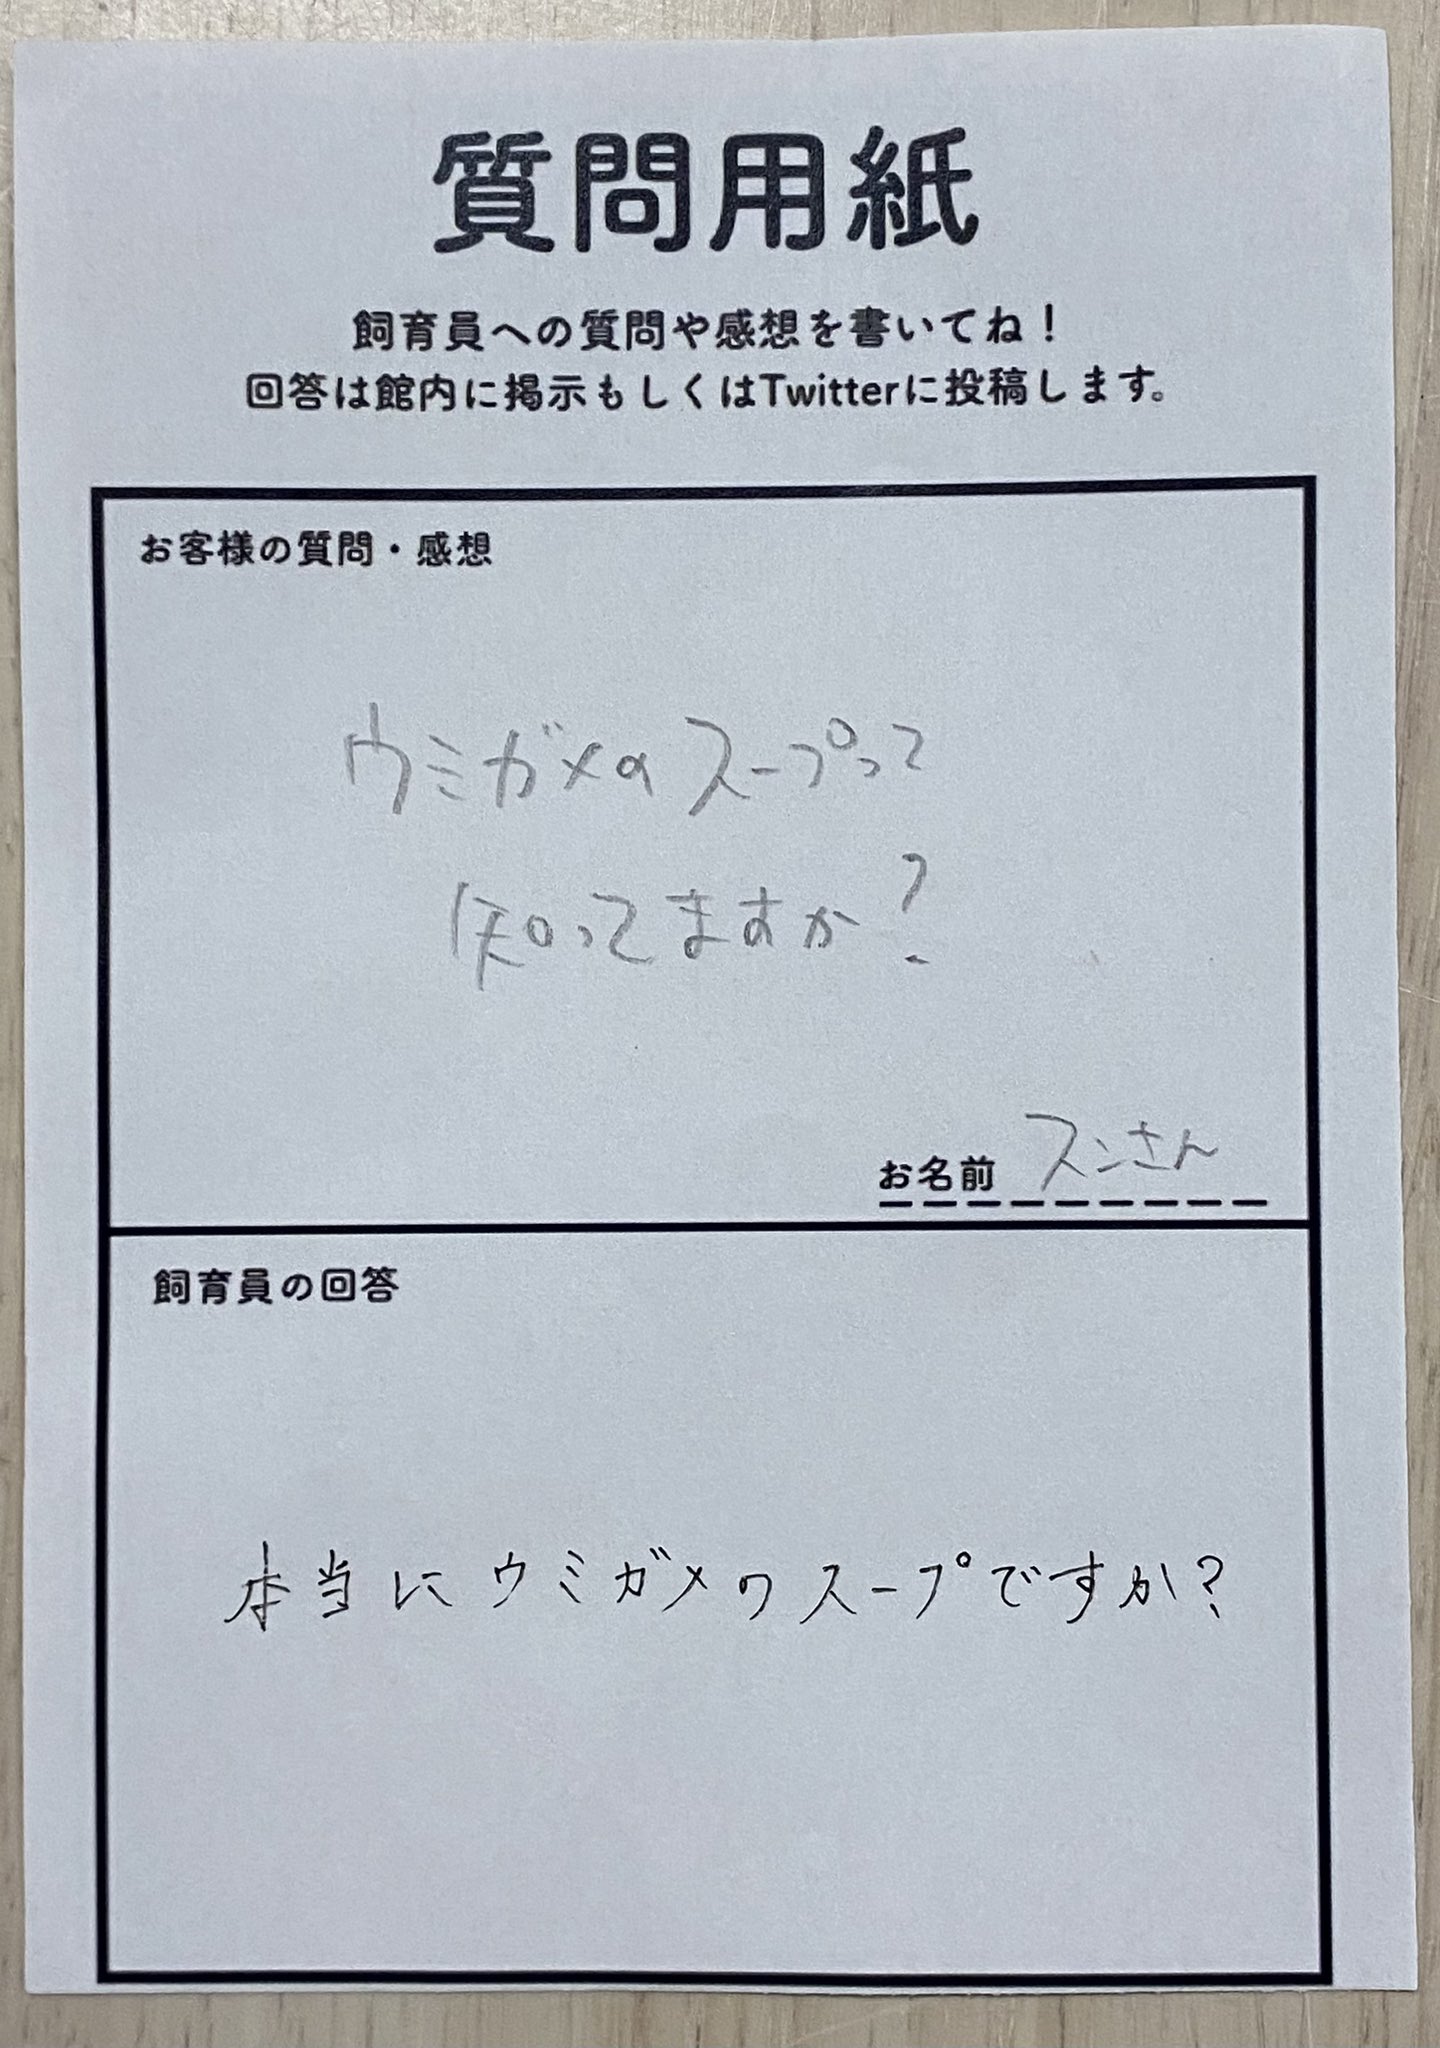 質問用紙
飼育員への質問や感想を書いてね！
回答は館内に掲示もしくはTwitterに投稿します。
お客様の質問・感想
ウミガメのスープって
知ってますか？
お名前 スンさん
飼育員の回答
本当にウミガメのスープですか？